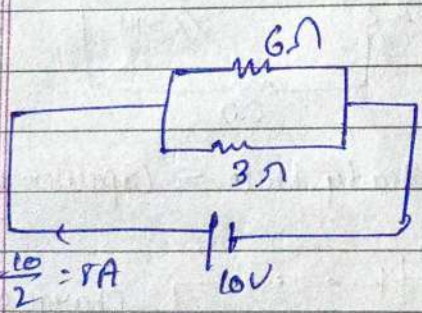 6Ω
3Ω
10/2 = 5A
10V